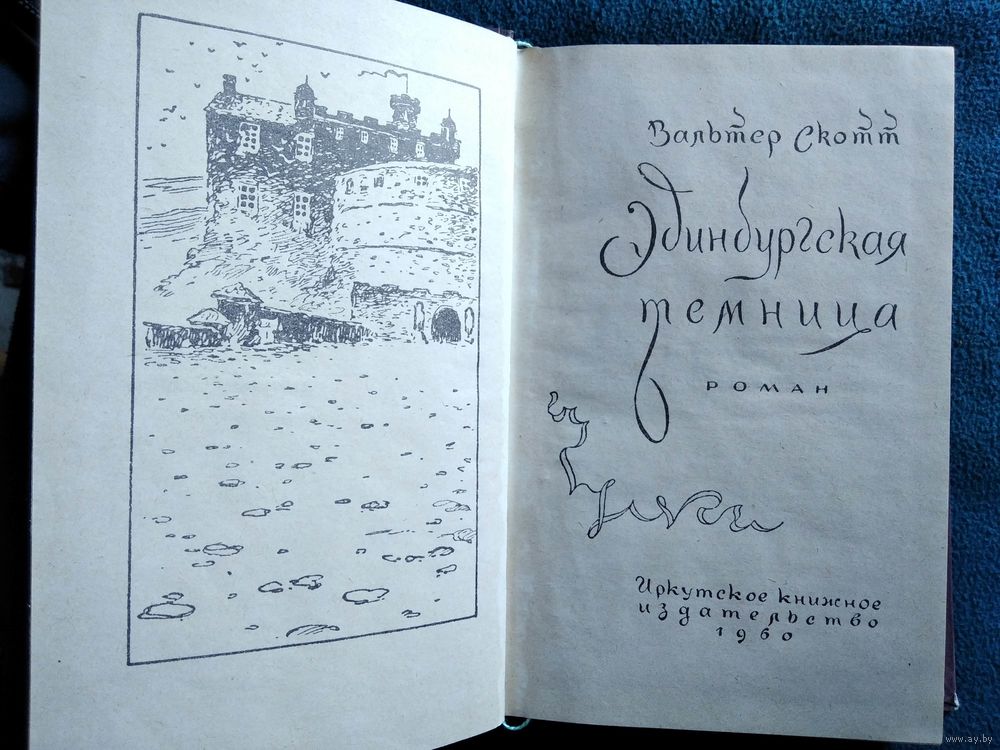 Вальтер Скотт
Эдинбургская
темница
РОМАН
Иркутское книжное
издательство
1960
www.ay.by